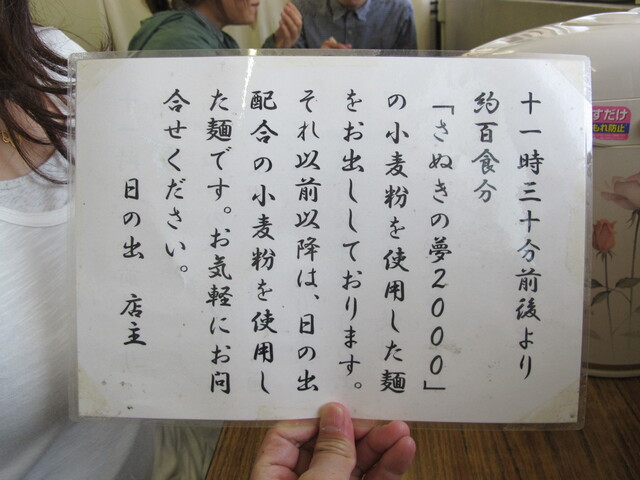 十一時三十分前後より
約百食分
「さぬきの夢2000」
の小麦粉を使用した麺
をお出ししております。
それ以前以降は、日の出
配合の小麦粉を使用し
た麺です。お気軽にお問
合せください。
日の出　店主
すだけ
もれ防止